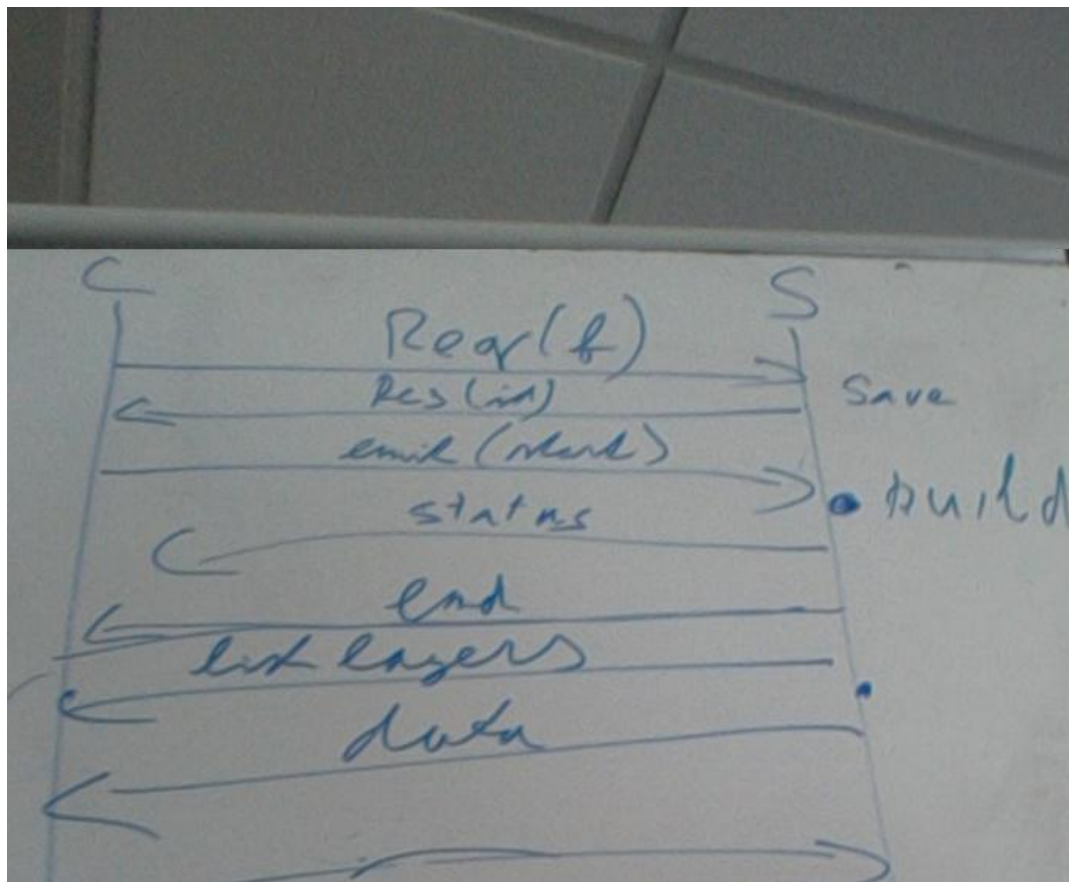 C S
Req(f)
Res(id) Save
emit(start)
build
status
end
list layers
data